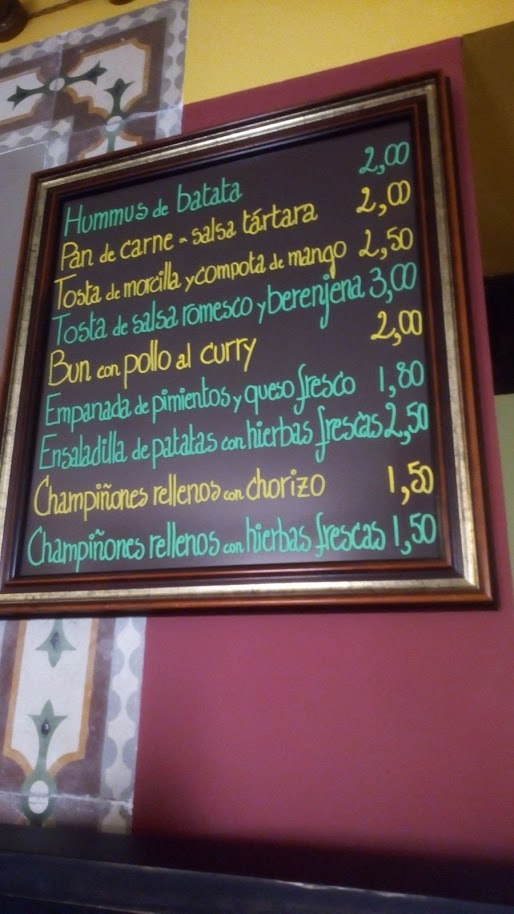 Hummus de batata 2,00
Pan de carne - salsa tártara 2,00
Tosta de morcilla y compota de mango 2,50
Tosta de salsa romesco y berenjena 3,00
Bun con pollo al curry 2,00
Empanada de pimientos y queso fresco 1,80
Ensaladilla de patatas con hierbas frescas 2,50
Champiñones rellenos con chorizo 1,50
Champiñones rellenos con hierbas frescas 1,50